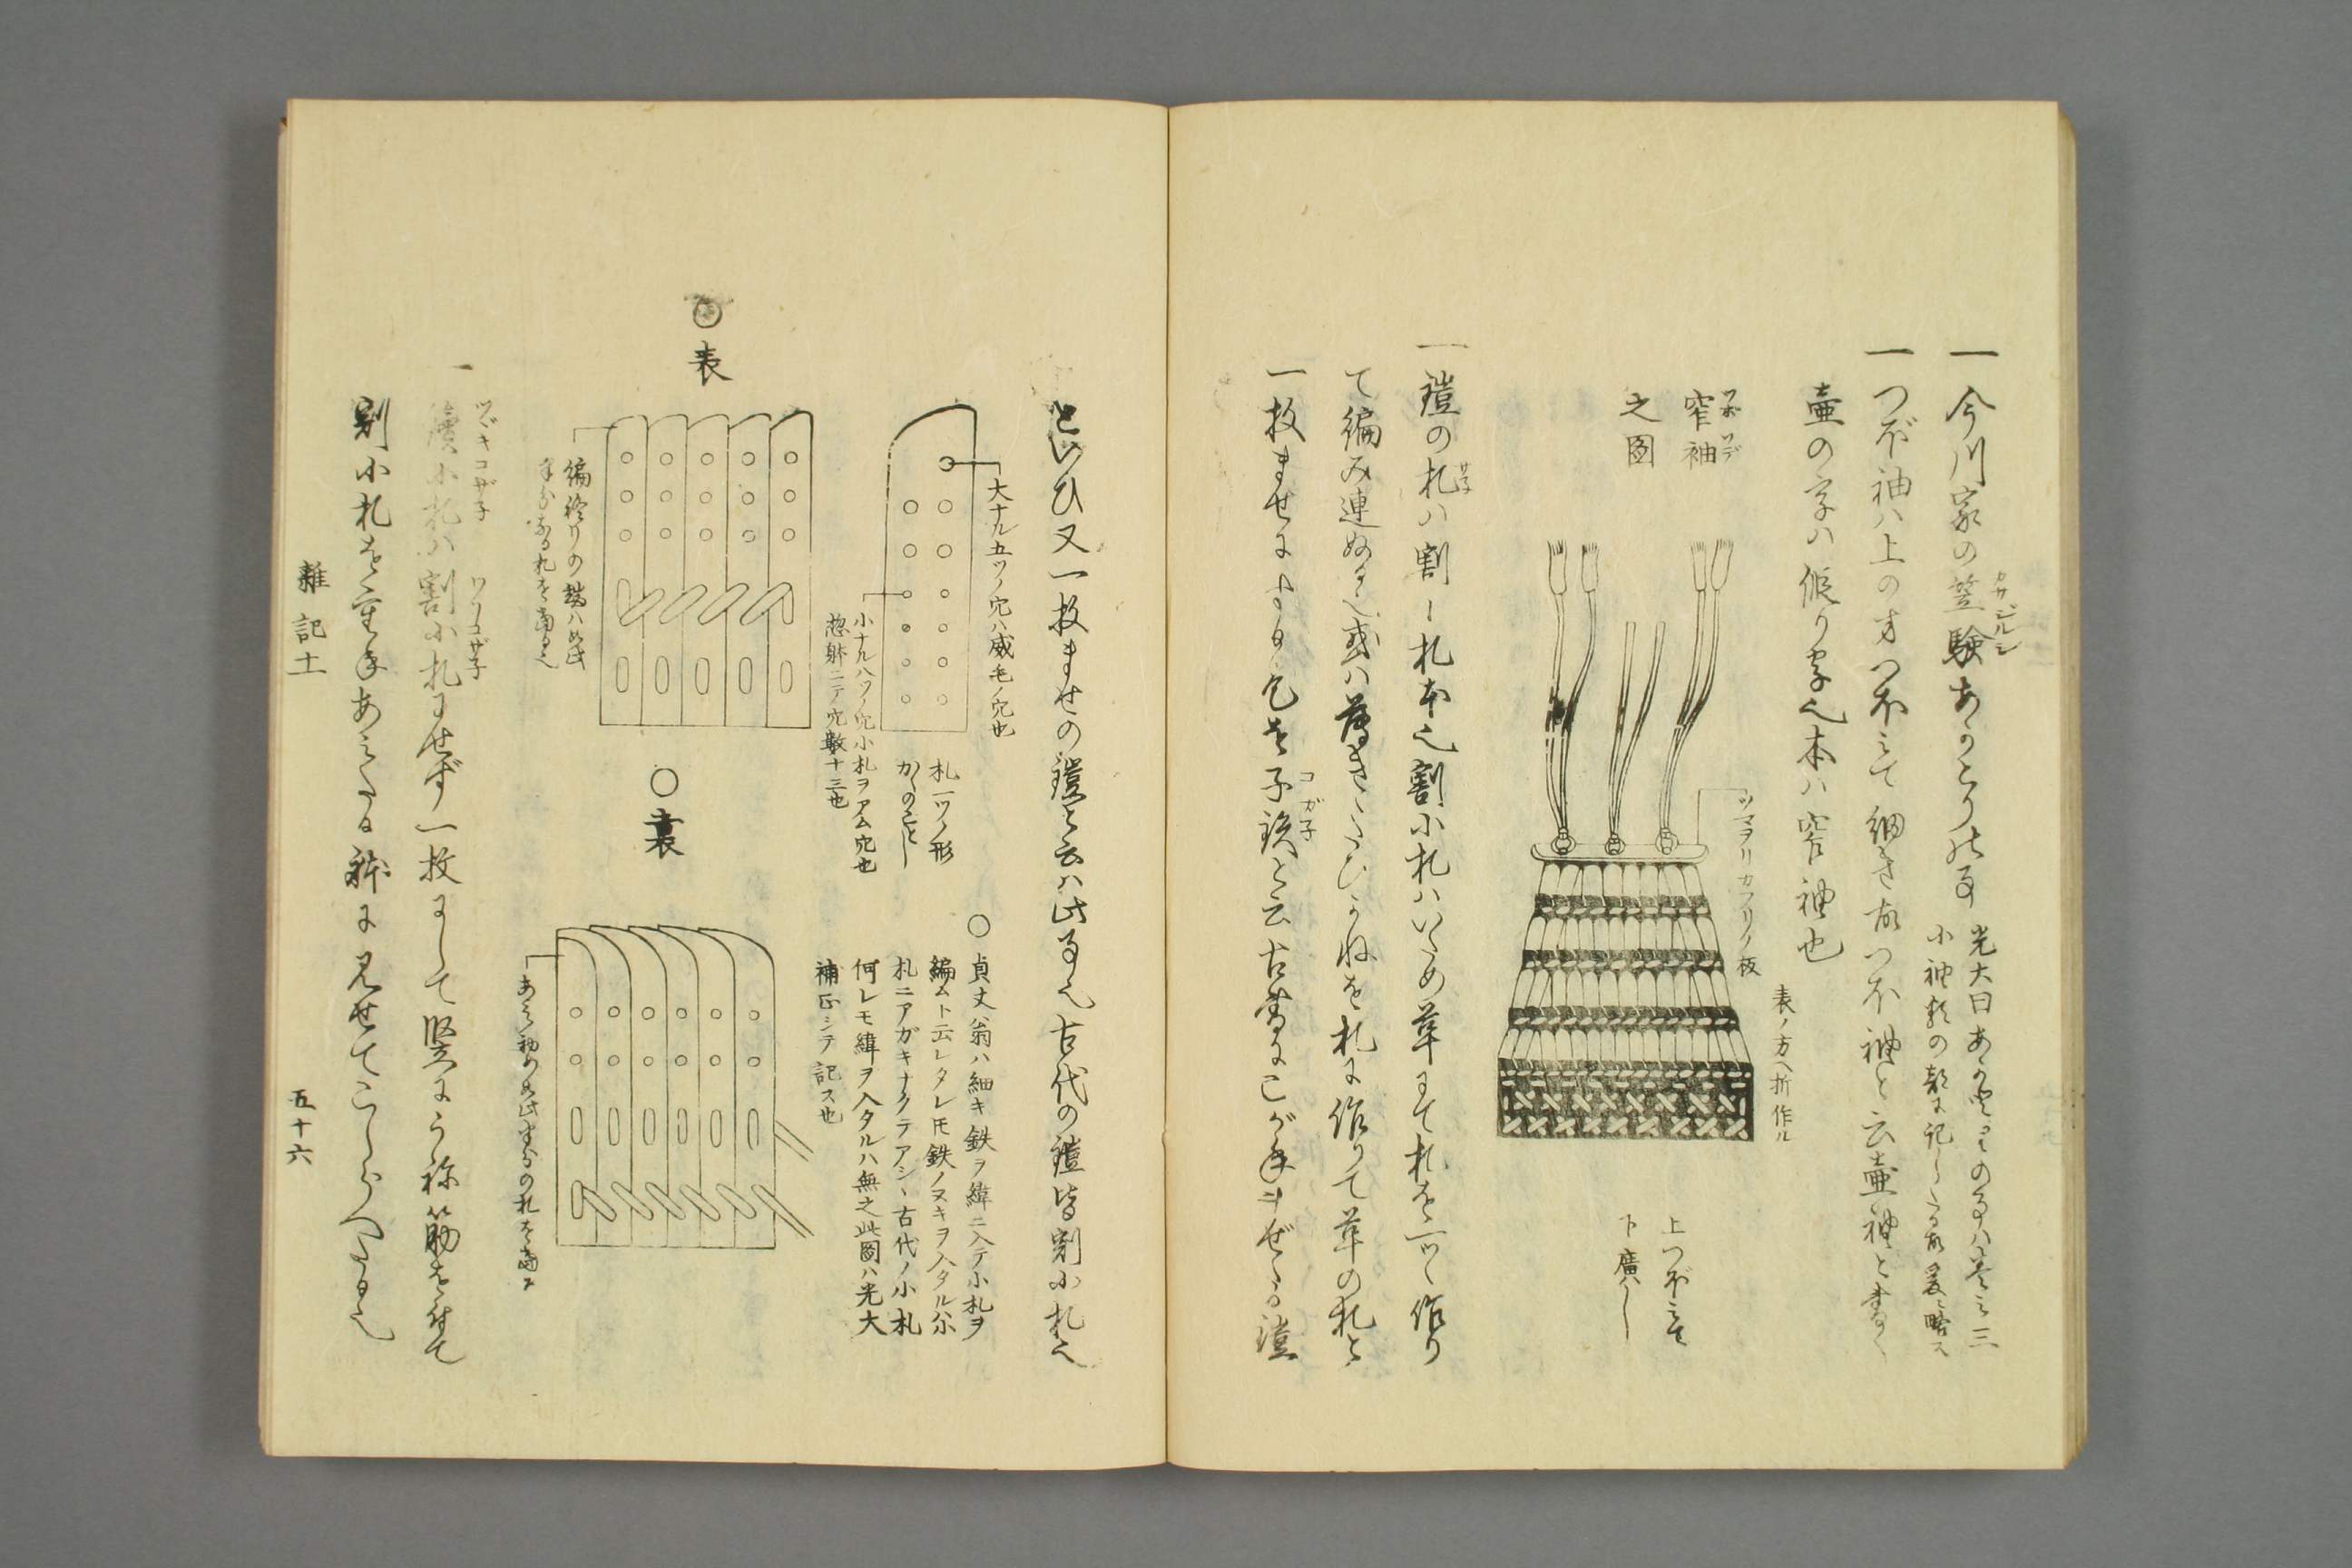 一 今川家の笠験あかとりの事
カサジルシ
光大曰あかとりの事ハ巻之三
小袖類の部に記したる故爰ニ略ス
一 つぼ袖ハ上の方つぼミて細き故つぼ袖と云壷袖と書く
壷の字ハ假り字也本ハ窄袖也
ツボソデ
窄袖
之図
ツマヲリカフリノ板
表ノ方ヘ折作ル
上つぼミて
下廣ハし
一 鎧の札ハ割し札本也割小札ハいため革にて札を一ツヽ作り
サネ
て編み連ぬる也或ハ薄きくろがねを札に作りて革の札と
一枚まぜに
コガ子
と云古書にこがねまぜの鎧
といひ又一枚まぜの鎧と云ハ此事也古代の鎧皆割小札也
大ナル五ツノ穴ハ威毛ノ穴也
小ナル八ツノ穴小札ヲアム穴也
惣躰ニテ穴数十三也
札一ツノ形
かくのことし
○表
編終りの端ハ如此
半分なる札を
○貞丈翁ハ細キ鉄ヲ緯ニ入テ小札ヲ
編ムト云レタレ𪜈鉄ノヌキヲ入タル小
札ニアガキナクテアシヽ古代ノ小札
何レモ緯ヲ入タルハ無之此図ハ光大
補正シテ記ス也
○裏
あミ初め如此半分の札を
一 續小札ハ割小札にせず一枚にして竪にうね筋を付て
ツヾキコザ子
ワリコザ子
割小札を重ねあミたる躰に見せてこしらへたる也
雑記十一
五十六